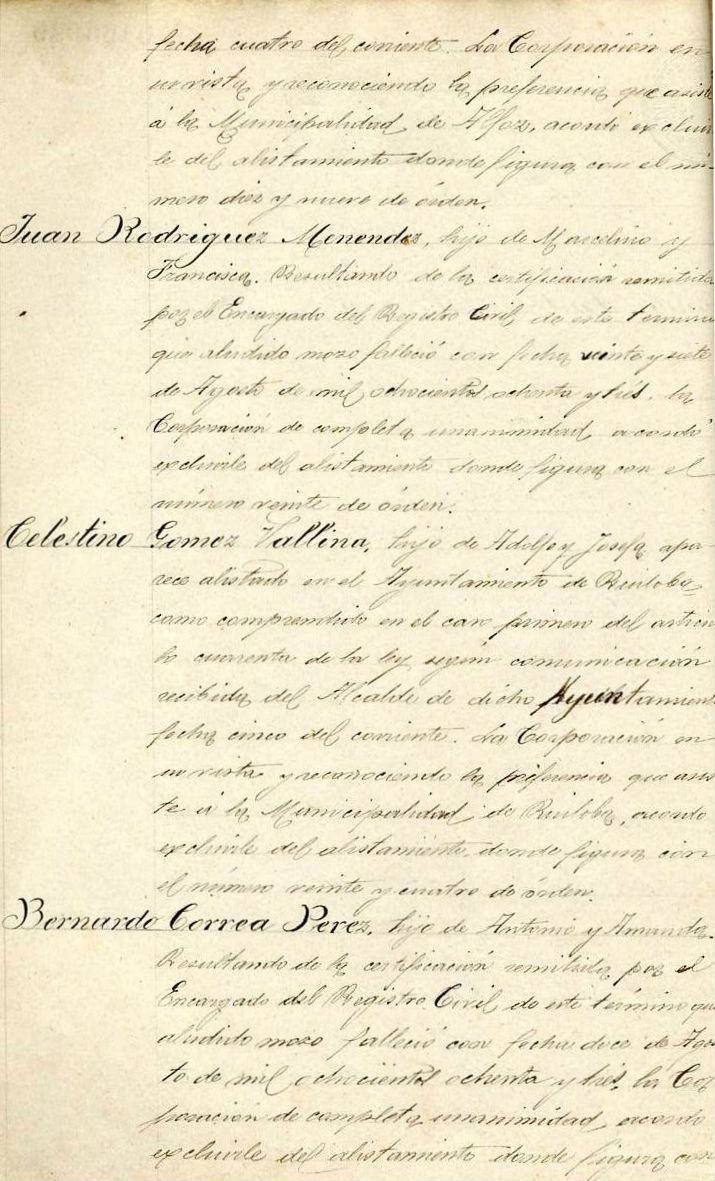 fecha cuatro del corriente. La Corporación en
su vista y reconociendo la preferencia que asiste
á la Municipalidad de Alfoz, acordó excluir
le del alistamiento donde figura con el nú-
mero diez y nueve de órden.
Juan Rodriguez Menendez, hijo de Marcelino y
Francisca. Resultando de la certificación remitida
por el Encargado del Registro Civil de este término
que aludido mozo falleció con fecha veinte y siete
de Agosto de mil ochocientos ochenta y trés, la
Corporación de completa unanimidad acordó
excluirle del alistamiento donde figura con el
número veinte de órden.
Celestino Gomez Vallina, hijo de Adolfo y Josefa apa-
rece alistado en el Ayuntamiento de Ruiloba
como comprendido en el caso primero del artícu
lo cuarenta de la ley según comunicación
recibida del Alcalde de dicho Ayuntamiento
fecha cinco del corriente. La Corporación en
su vista y reconociendo la preferencia que asis
te á la Municipalidad de Ruiloba, acordó
excluirle del alistamiento donde figura con
el número veinte y cuatro de órden.
Bernardo Correa Perez, hijo de Antonio y Amanda.
Resultando de la certificación remitida por el
Encargado del Registro Civil de este término que
aludido mozo falleció con fecha doce de Agos
to de mil ochocientos ochenta y trés, la Cor
poración de completa unanimidad acordó
excluirle del alistamiento donde figura con